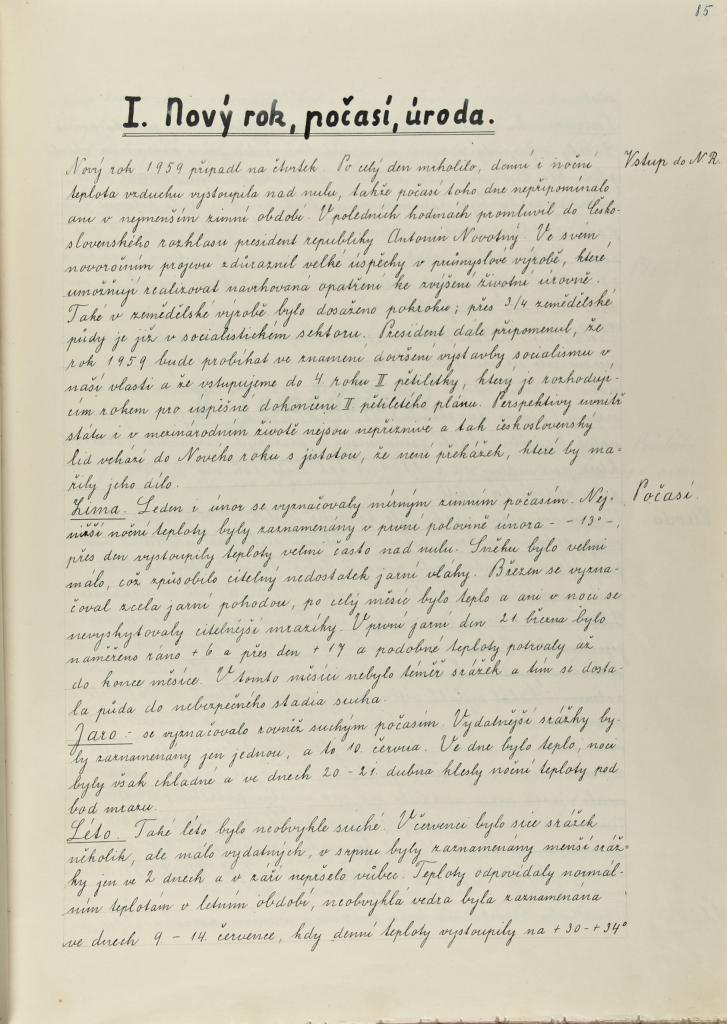 85
I. Nový rok, počasí, úroda.
Nový rok 1959 připadl na čtvrtek. Po celý den mrholilo, denní i noční
Vstup do N. R.
teplota vzduchu vystoupila nad nulu, takže počasí toho dne nepřipomínalo
ani v nejmenším zimní období. V poledních hodinách promluvil do Česko-
slovenského rozhlasu president republiky Antonín Novotný. Ve svém
novoročním projevu zdůraznil velké úspěchy v průmyslové výrobě, které
umožňují realizovat navrhovaná opatření ke zvýšení životní úrovně.
Také v zemědělské výrobě bylo dosaženo pokroku; přes 3/4 zemědělské
půdy je již v socialistickém sektoru. President dále připomenul, že
rok 1959 bude probíhat ve znamení dovršení výstavby socialismu v
naší vlasti a že vstupujeme do 4. roku II pětiletky, který je rozhodují-
cím rokem pro úspěšné dokončení II. pětiletého plánu. Perspektivy uvnitř
státu i v mezinárodním životě nejsou nepříznivé a tak československý
lid vchází do Nového roku s jistotou, že není překážek, které by ma-
řily jeho dílo.
Zima. Leden i únor se vyznačovaly mírným zimním počasím. Nej-
Počasí.
nižší noční teploty byly zaznamenány v první polovině února - - 13° -,
přes den vystoupily teploty velmi často nad nulu. Sněhu bylo velmi
málo, což způsobilo citelný nedostatek jarní vláhy. Březen se vyzna-
čoval zcela jarní pohodou, po celý měsíc bylo teplo a ani v noci se
nevyskytovaly citelnější mrazíky. V první jarní den 21. března bylo
naměřeno ráno + 6 a přes den + 17 a podobné teploty potrvaly až
do konce měsíce. V tomto měsíci nebylo téměř srážek a tím se dosta-
la půda do nebezpečného stadia sucha.
Jaro - se vyznačovalo rovněž suchým počasím. Vydatnější srážky by-
ly zaznamenány jen jednou, a to 10. června. Ve dne bylo teplo, noci
byly však chladné a ve dnech 20. - 21. dubna klesly noční teploty pod
bod mrazu.
Léto. Také léto bylo neobvykle suché. V červenci bylo sice srážek
několik, ale málo vydatných, v srpnu byly zaznamenány menší sráž-
ky jen ve 2 dnech a v září nepršelo vůbec. Teploty odpovídaly normál-
ním teplotám v letním období, neobvyklá vedra byla zaznamenána
ve dnech 9. - 14. července, kdy denní teploty vystoupily na + 30 - + 34°